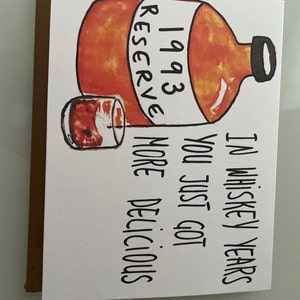 1993
RESERVE
IN WHISKEY YEARS
YOU JUST GOT
MORE DELICIOUS